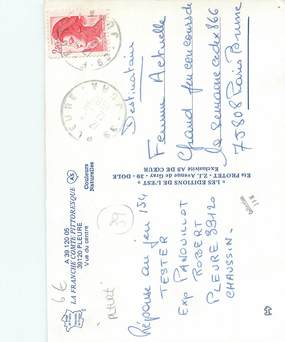 LA FRANCHE COMTE PITTORESQUE
A 39 120 05
39120 PLEURE
Vue du centre
Couleurs
Naturelles
"LES EDITIONS DE L'EST"
Ets PROTET - Z.I. Avenue de Gray - 39 - DOLE
Exclusivité AS DE CŒUR
6€
39
Réponse au jeu 154
TESTER
Exp PANOUILLOT
ROBERT
PLEURE 39120
CHAUSSIN.
Destinataire
Femme Actuelle
Grand jeu concours de
la semaine cedex 866
75808 Paris Brune
PLEURE
JURA
2,20